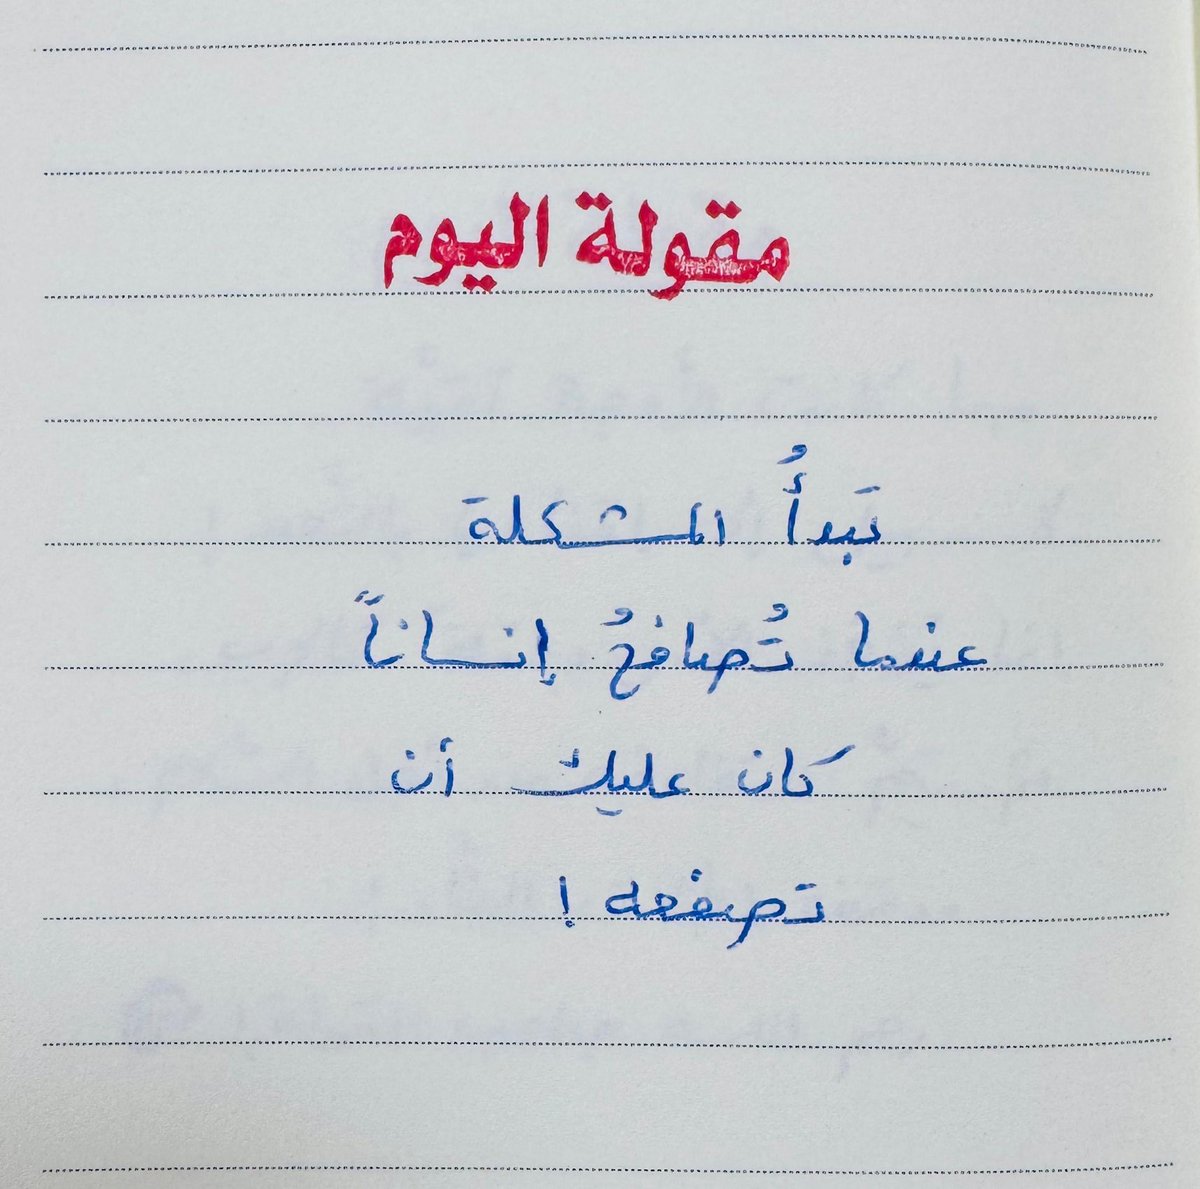 مقولة اليوم
تَبدأُ المشكلة
عندما تُصافحُ إنساناً
كان عليك أن
تصفعه !